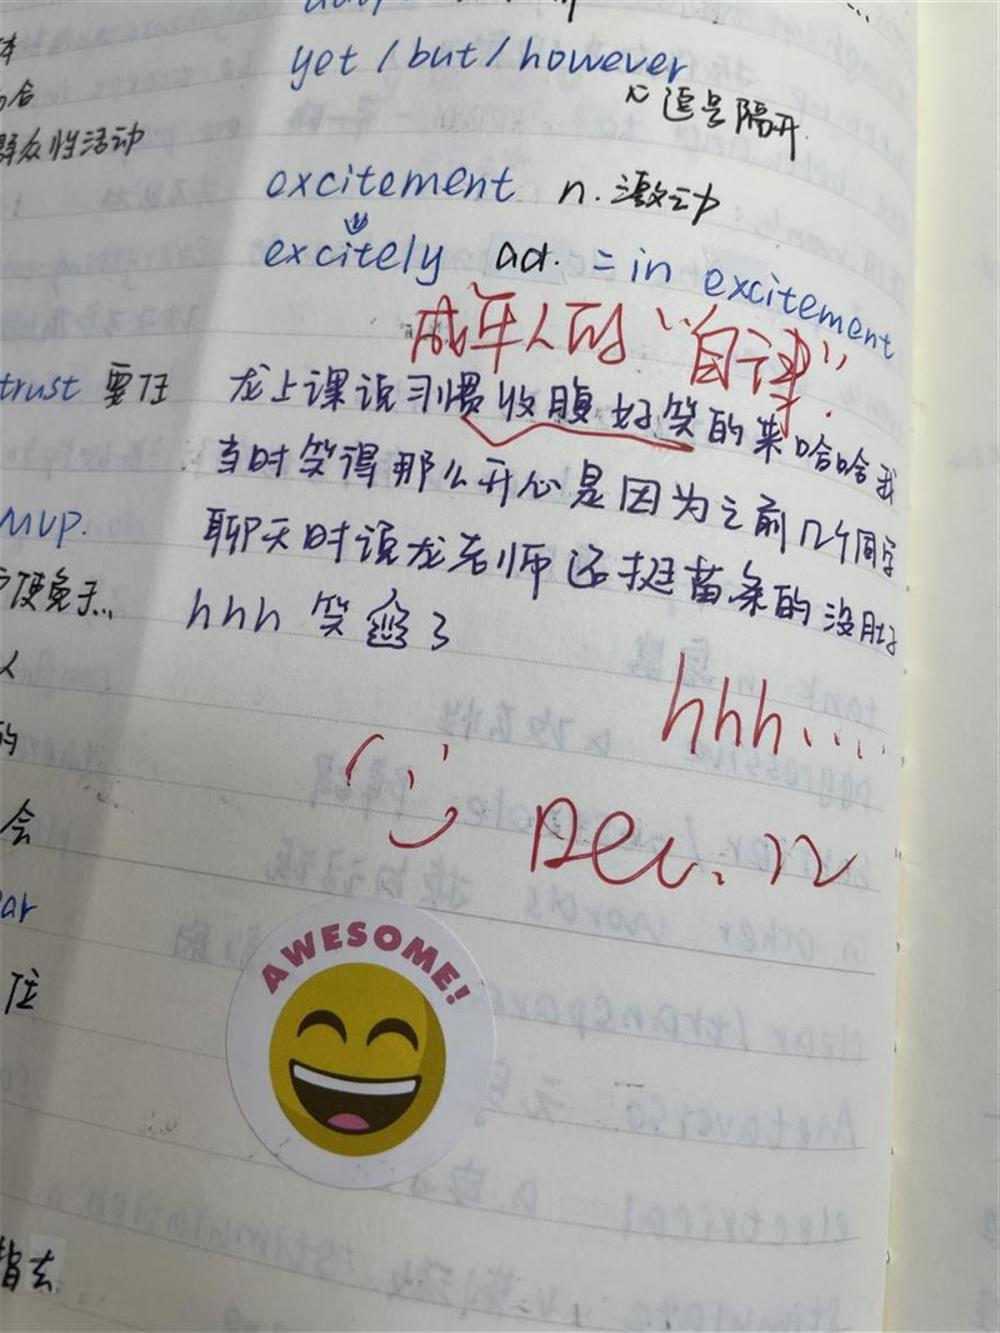 yet / but / however
逗号隔开
体
合
群众性活动
excitement n. 激动
excitely ad. = in excitement
成年人的“自律”.
trust 委任
龙上课说习惯收腹好笑的来哈哈我
当时笑得那么开心是因为之前几个同学
MVP.
聊天时说龙老师还挺苗条的没肚子
方便免于...
hhh 笑翻了
人
hhh....
的
Dec. 22
会
ar
AWESOME!
住
去